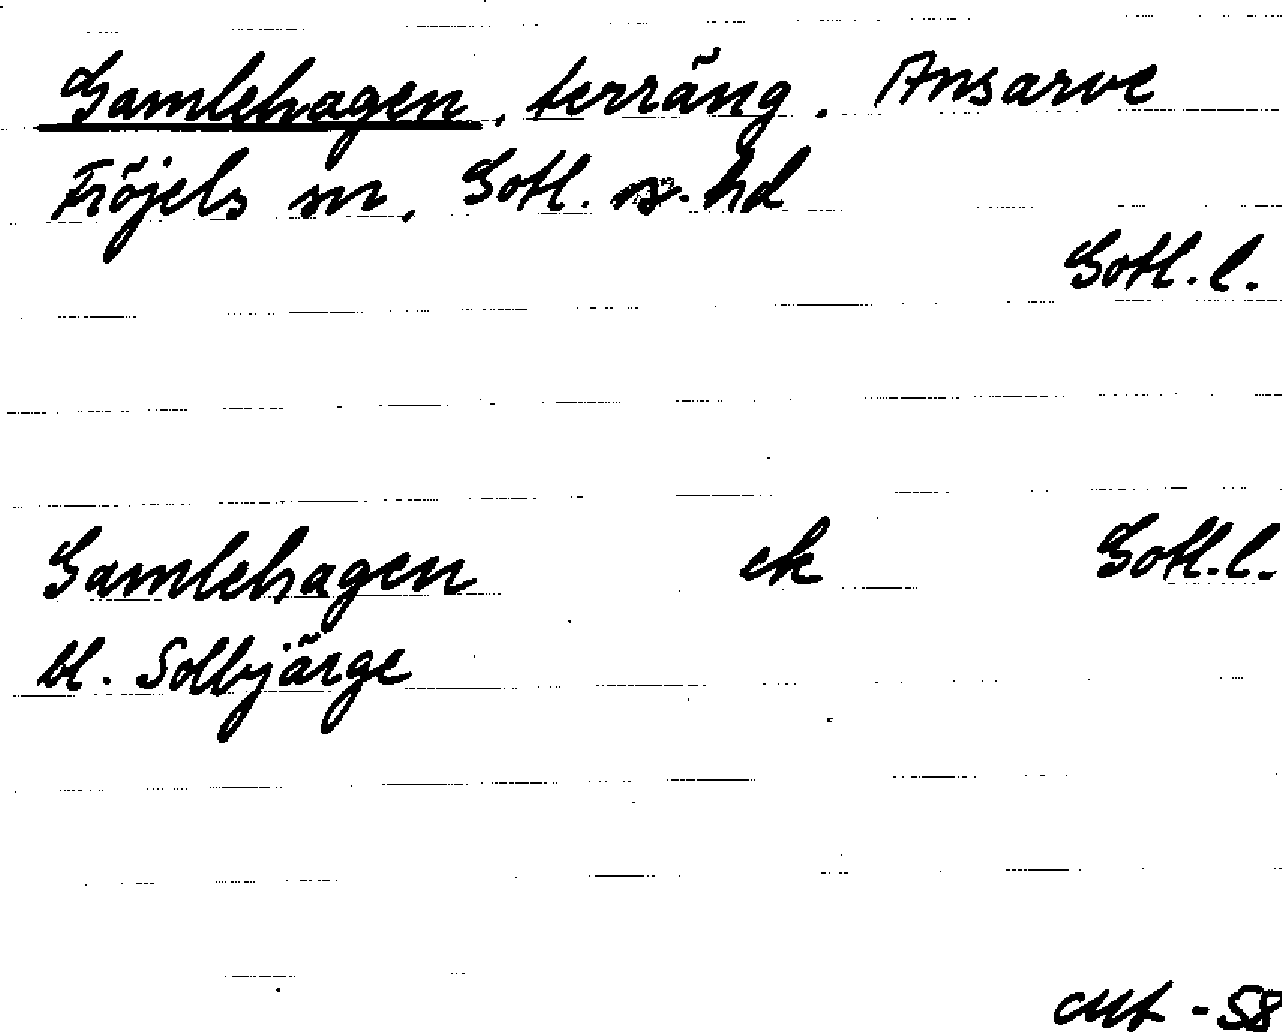 Gamlehagen, terräng. Ansarve
Fröjels sn, Gotl. s. hd
Gotl. l.
Gamlehagen ek Gotl. l.
bl. Solbjärge
-58